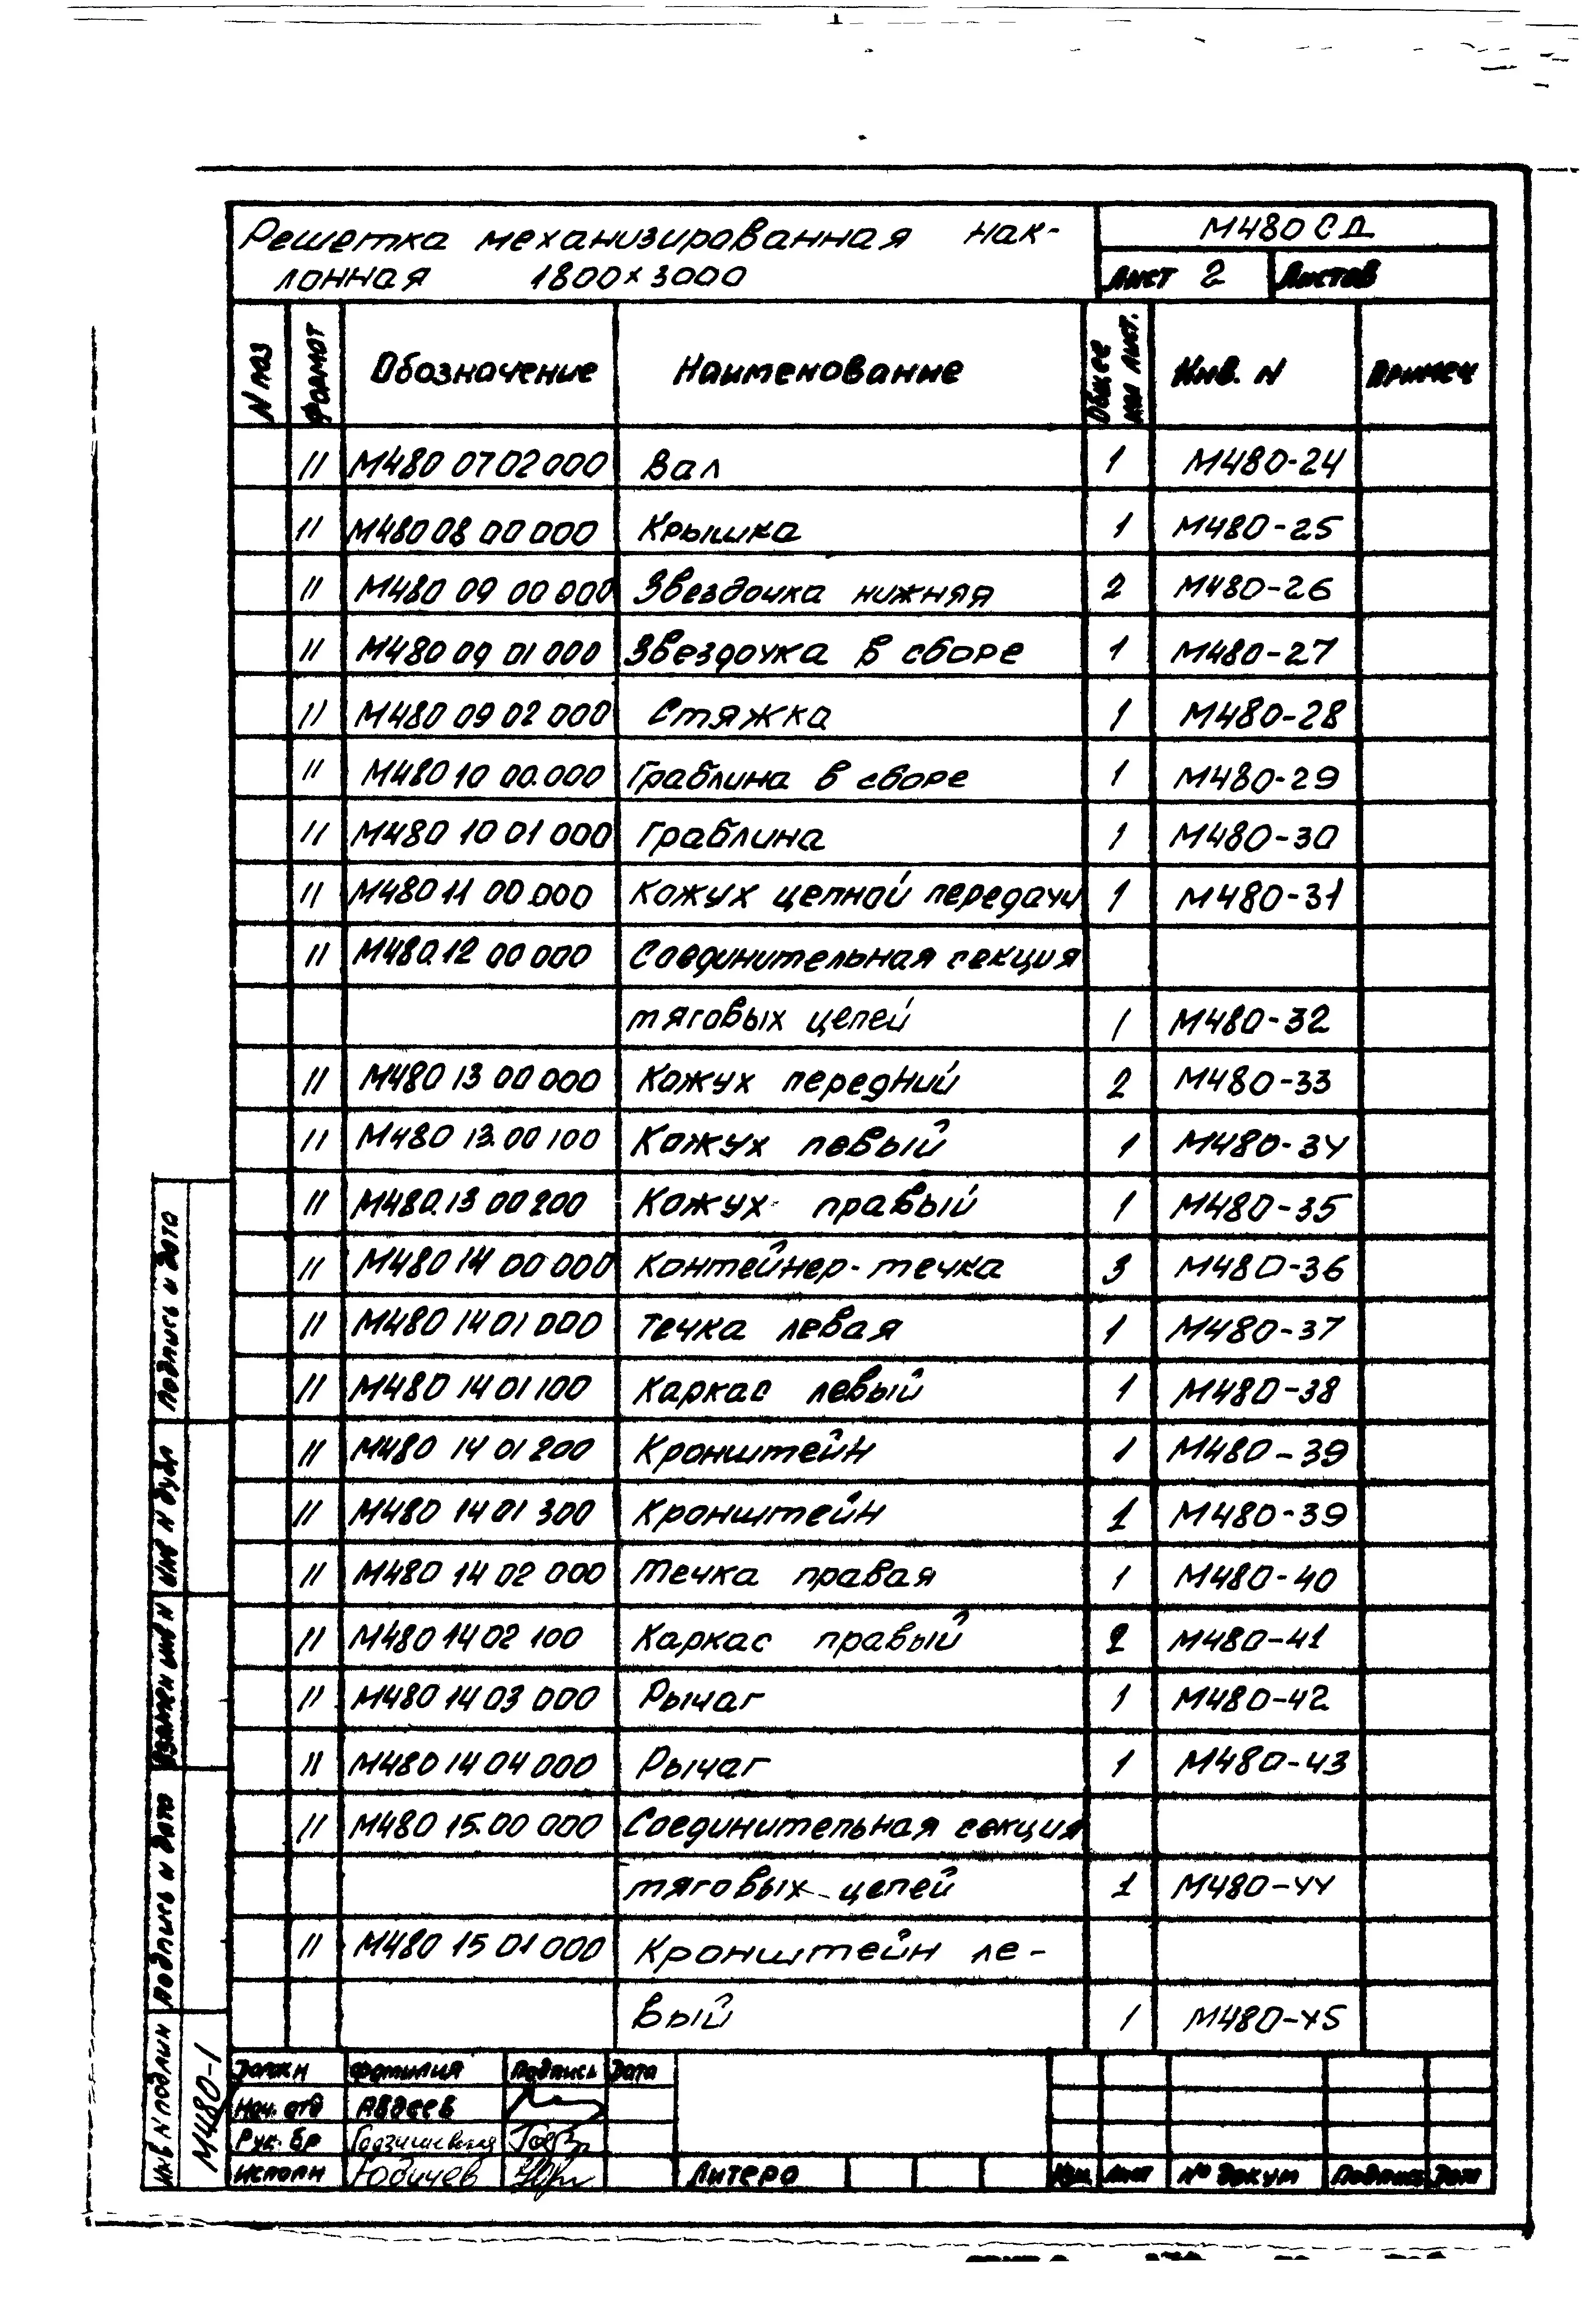 Решетка механизированная нак-
лонная 1800×3000
М480СД
Лист 2 Листов
N поз Формат Обозначение Наименование Общее кол лист. Инв. N Примеч
11 М480 07 02 000 Вал 1 М480-24
11 М480 08 00 000 Крышка 1 М480-25
11 М480 09 00 000 Звездочка нижняя 2 М480-26
11 М480 09 01 000 Звездочка в сборе 1 М480-27
11 М480 09 02 000 Стяжка 1 М480-28
11 М480 10 00.000 Граблина в сборе 1 М480-29
11 М480 10 01 000 Граблина 1 М480-30
11 М480 11 00.000 Кожух цепной передачи 1 М480-31
11 М480.12 00 000 Соединительная секция
тяговых цепей 1 М480-32
11 М480 13 00 000 Кожух передний 2 М480-33
11 М480 13.00 100 Кожух левый 1 М480-34
11 М480.13 00 200 Кожух правый 1 М480-35
11 М480 14 00 000 Контейнер-течка 3 М480-36
11 М480 14 01 000 Течка левая 1 М480-37
11 М480 14 01 100 Каркас левый 1 М480-38
11 М480 14 01 200 Кронштейн 1 М480-39
11 М480 14 01 300 Кронштейн 1 М480-39
11 М480 14 02 000 Течка правая 1 М480-40
11 М480 14 02 100 Каркас правый 2 М480-41
11 М480 14 03 000 Рычаг 1 М480-42
11 М480 14 04 000 Рычаг 1 М480-43
11 М480 15.00 000 Соединительная секция
тяговых цепей 1 М480-44
11 М480 15 01 000 Кронштейн ле-
вый 1 М480-45
Подпись и дата
Инв N дубл
Взамен инв N
Подпись и дата
Инв N подлин М480-1
Должн Фамилия Подпись Дата
Нач. отд Авдеев
Рук. бр
Исполн Юдичев
Литера
Изм Лист № докум Подпись Дата